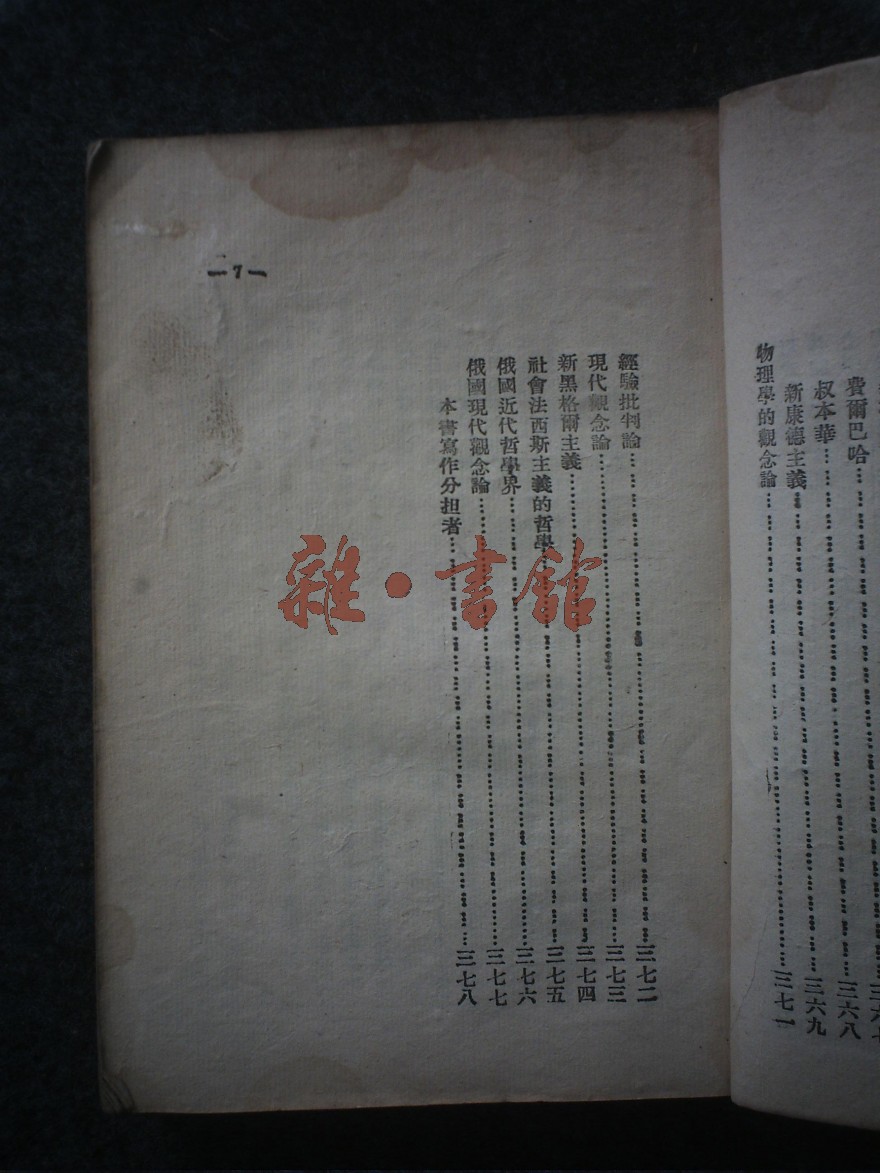 費爾巴哈…三六八
叔本華…三六九
新康德主義…
物理學的觀念論…三七一
—7—
經驗批判論…三七二
現代觀念論…三七三
新黑格爾主義…三七四
社會法西斯主義的哲學…三七五
俄國近代哲學界…三七六
俄國現代觀念論…三七七
本書寫作分担者…三七八
雜·書館